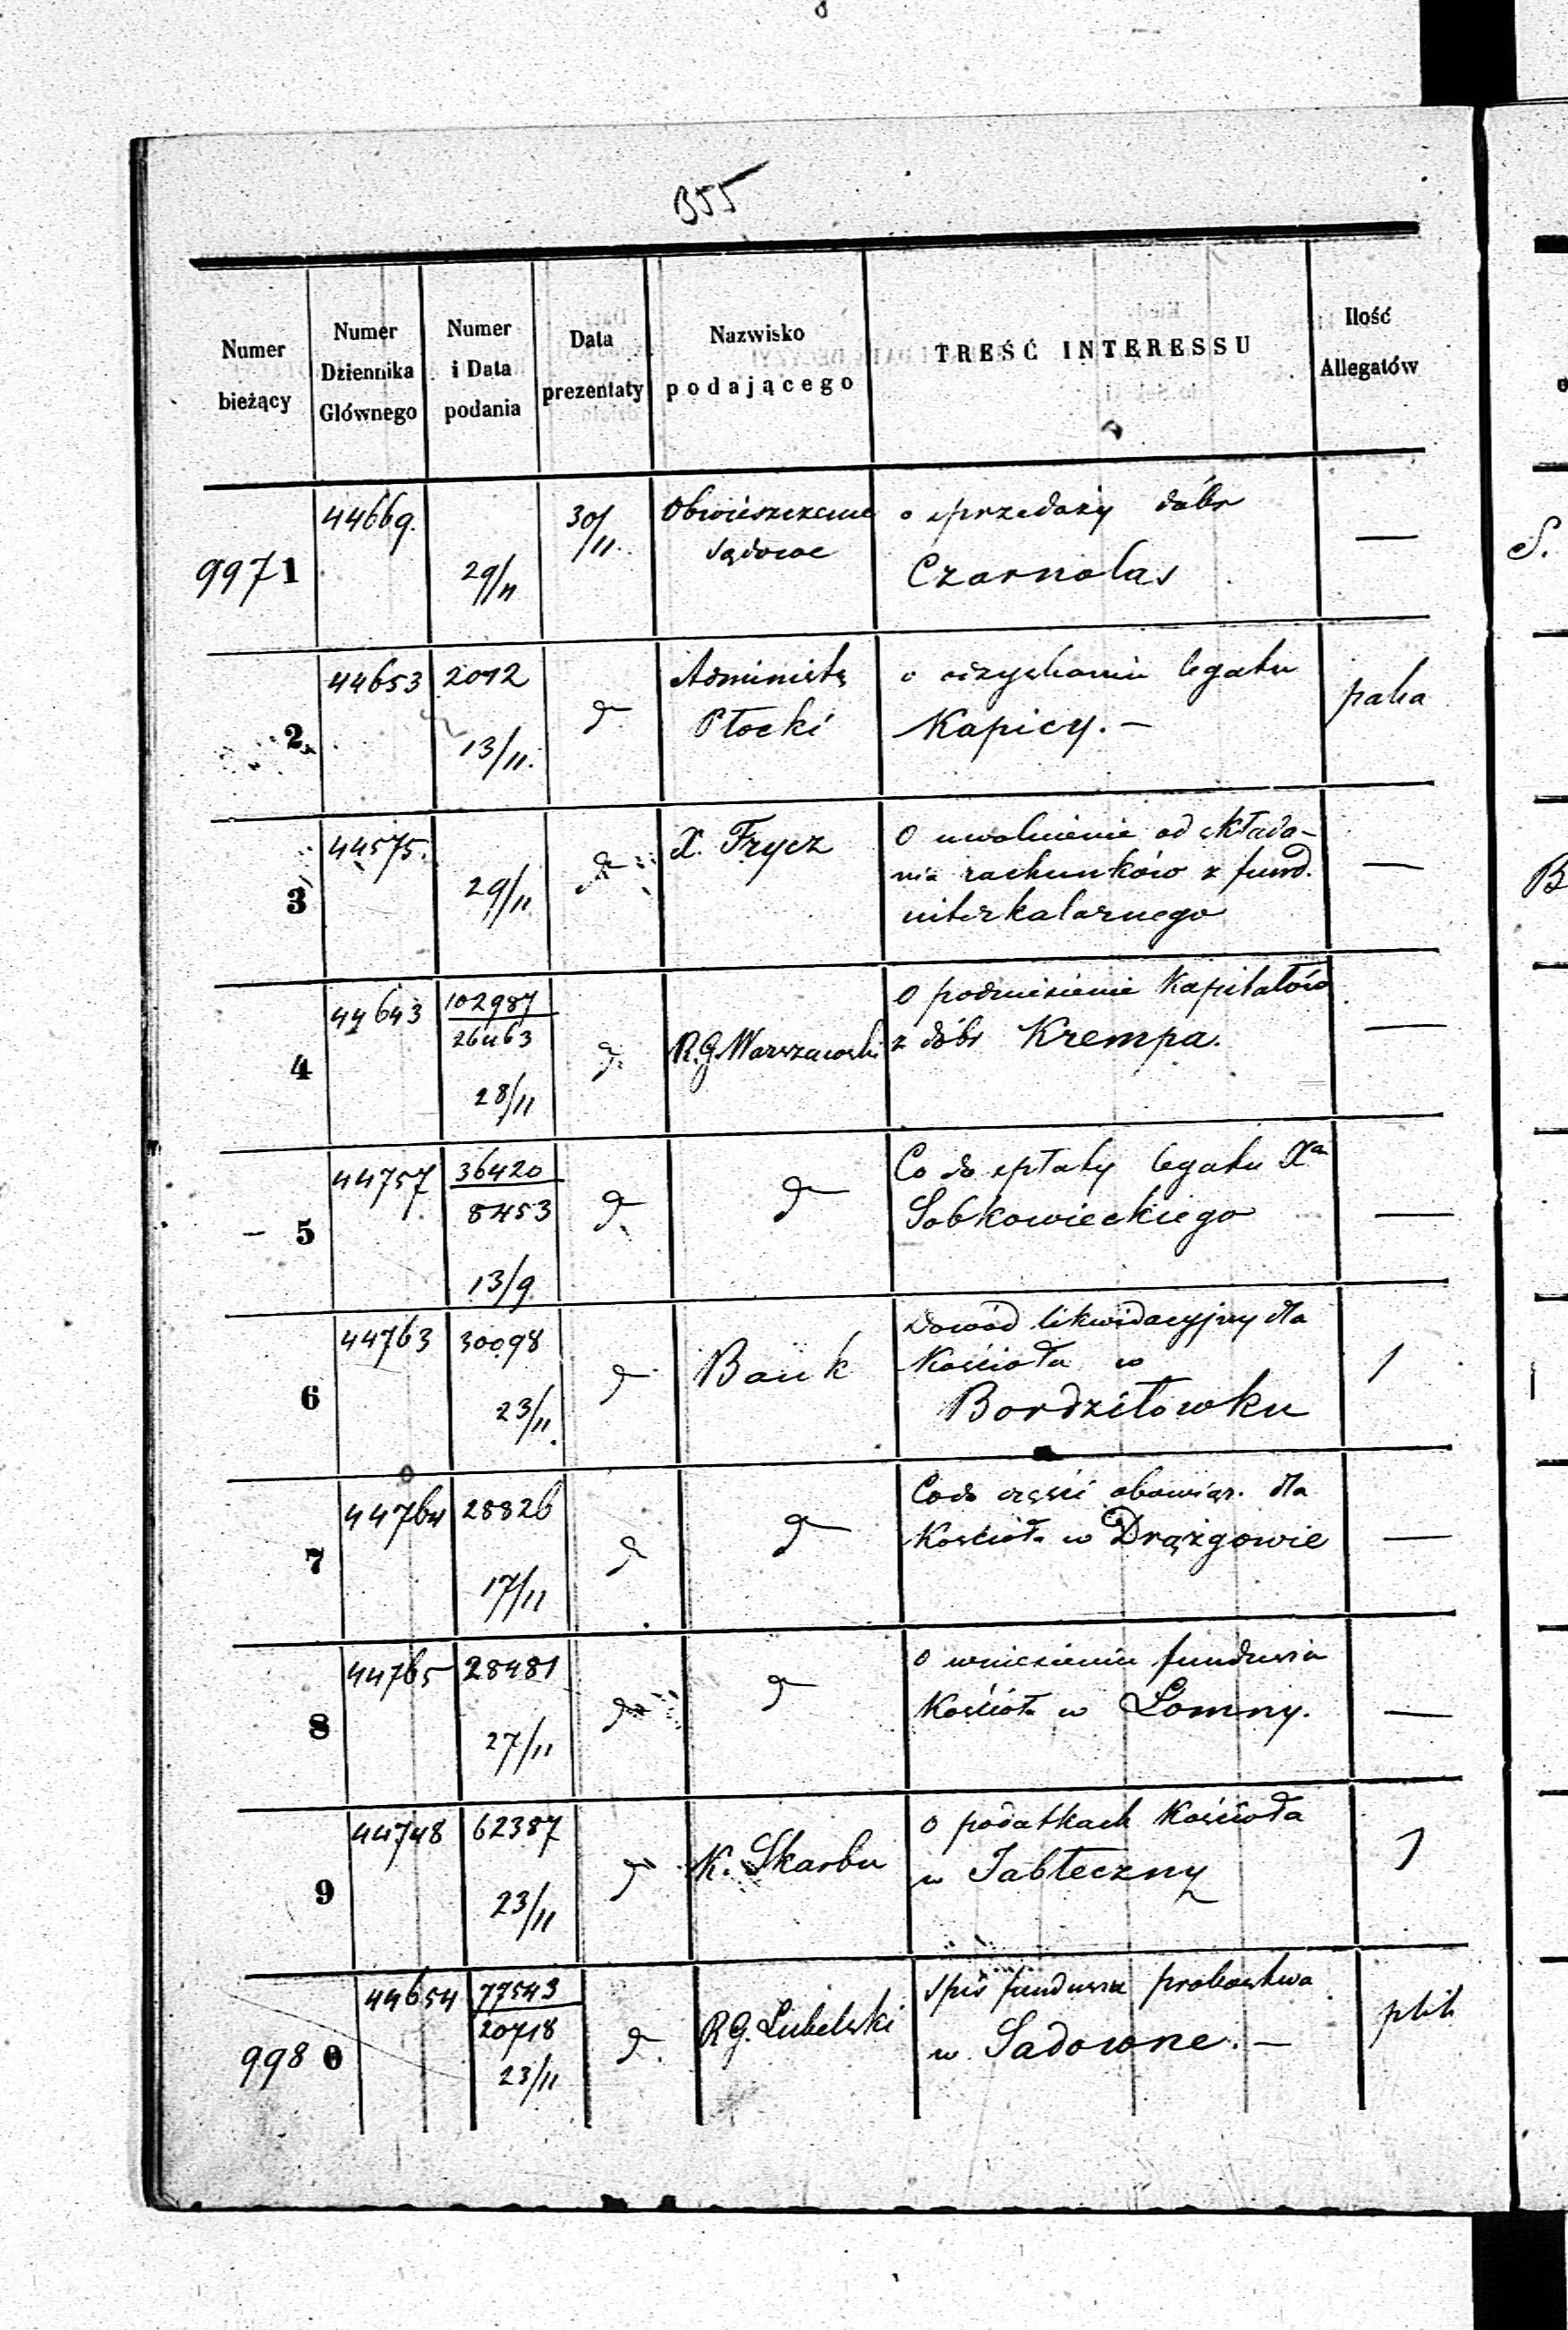 355
Numer bieżący
Numer Dziennika Głównego
Numer i Data podania
Data prezentaty
Nazwisko podającego
TREŚĆ INTERESSU
Ilość Allegatów
9971 44669. 29/11 30/11. Obwieszczenie o sprzedaży dóbr —
Sądowe Czarnolas
2. 44653 2012 13/11. d° Administr. o odzyskaniu legatu paka
Płocki Kapicy. —
3 44575. 29/11 d° X. Frycz O uwolnienie od składa- —
nia rachunków z fund.
interkalarnego
4 44643 102987 O podniesienie Kapitałów —
26463 28/11 d° R.G. Warszawski z dóbr Krempa.
5 44757 36420 Co do spłaty legatu Xa —
8453 13/9 d° d° Sobkowieckiego
6 44763 30098 23/11. d° Bank Dowód likwidacyjny dla 1
Kościoła w
Bordziłówku
7 44764 28826 17/11 d° d° Co do części obowiąz. dla —
Kościoła w Drążgowie
8 44765 28481 27/11 d° d° o wniesieniu fundusza —
Kościoła w Łomny.
9 44748 62387 23/11 d° K. Skarbu O podatkach Kościoła 1
w Jabłeczny
9980 44654 77543 Spis fundusza probostwa plik
20718 23/11 d° R.G. Lubelski w Sadowne. —
S.
B